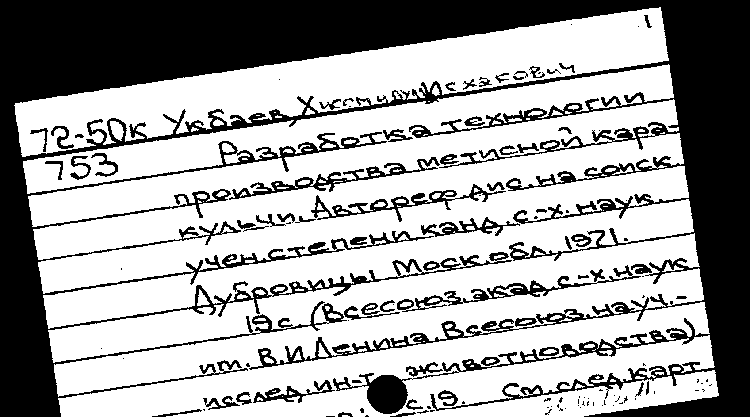 1
72-50к Укбаев, Хисмидин Исхакович
753 Разработка технологии
производства метисной кара-
кульчи. Автореф. дис. на соиск.
учен. степени канд. с.-х. наук.
Дубровицы Моск. обл., 1971.
19 с. (Всесоюз. акад. с.-х. наук
им. В.И. Ленина. Всесоюз. науч.-
исслед. ин-т животноводства).
с. 19. См. след. карт.